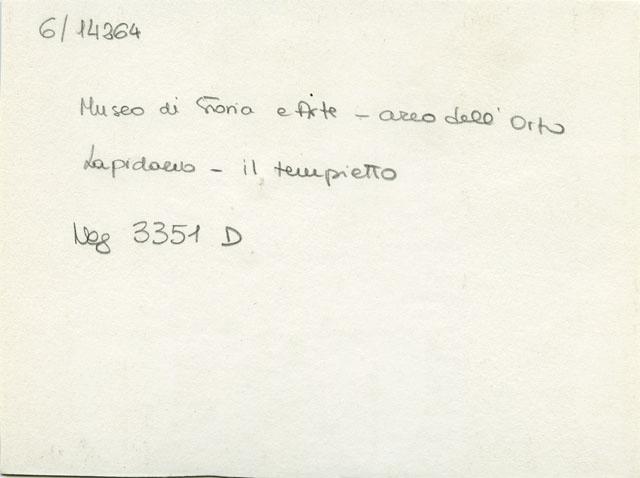 6/14364
Museo di Storia e Arte - area dell'Orto
Lapidario - il tempietto
Neg 3351 D